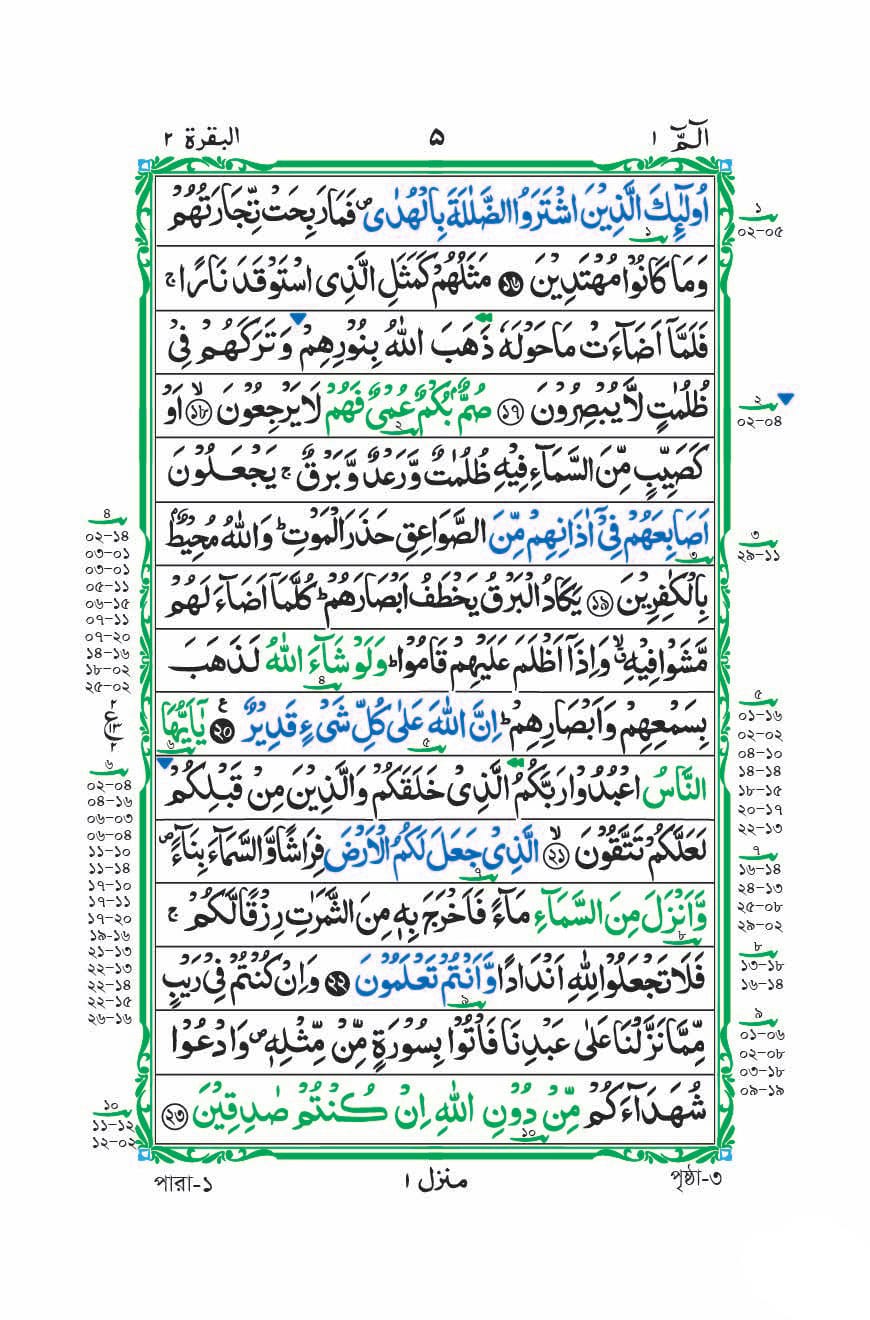 الٓمّٓ ١
۵
البقرة ٢
اُولٰٓئِكَ الَّذِيْنَ اشْتَرَوُا الضَّلٰلَةَ بِالْهُدٰى ۪ فَمَا رَبِحَتْ تِّجَارَتُهُمْ
وَمَا كَانُوْا مُهْتَدِيْنَ ﴿۱۶﴾ مَثَلُهُمْ كَمَثَلِ الَّذِى اسْتَوْقَدَ نَارًا ۚ
فَلَمَّآ اَضَآءَتْ مَا حَوْلَهٗ ذَهَبَ اللّٰهُ بِنُوْرِهِمْ وَتَرَكَهُمْ فِىْ
ظُلُمٰتٍ لَّا يُبْصِرُوْنَ ﴿۱۷﴾ صُمٌّۢ بُكْمٌ عُمْىٌ فَهُمْ لَا يَرْجِعُوْنَ ۙ﴿۱۸﴾ اَوْ
كَصَيِّبٍ مِّنَ السَّمَآءِ فِيْهِ ظُلُمٰتٌ وَّرَعْدٌ وَّبَرْقٌ ۚ يَجْعَلُوْنَ
اَصَابِعَهُمْ فِىْٓ اٰذَانِهِمْ مِّنَ الصَّوَاعِقِ حَذَرَ الْمَوْتِ ؕ وَاللّٰهُ مُحِيْطٌۢ
بِالْكٰفِرِيْنَ ﴿۱۹﴾ يَكَادُ الْبَرْقُ يَخْطَفُ اَبْصَارَهُمْ ؕ كُلَّمَآ اَضَآءَ لَهُمْ
مَّشَوْا فِيْهِ ۙ وَاِذَآ اَظْلَمَ عَلَيْهِمْ قَامُوْا ؕ وَلَوْ شَآءَ اللّٰهُ لَذَهَبَ
بِسَمْعِهِمْ وَاَبْصَارِهِمْ ؕ اِنَّ اللّٰهَ عَلٰى كُلِّ شَىْءٍ قَدِيْرٌ ﴿۲۰﴾ يٰٓاَيُّهَا
النَّاسُ اعْبُدُوْا رَبَّكُمُ الَّذِىْ خَلَقَكُمْ وَالَّذِيْنَ مِنْ قَبْلِكُمْ
لَعَلَّكُمْ تَتَّقُوْنَ ۙ﴿۲۱﴾ الَّذِىْ جَعَلَ لَكُمُ الْاَرْضَ فِرَاشًا وَّالسَّمَآءَ بِنَآءً ۪
وَّاَنْزَلَ مِنَ السَّمَآءِ مَآءً فَاَخْرَجَ بِهٖ مِنَ الثَّمَرٰتِ رِزْقًا لَّكُمْ ۚ
فَلَا تَجْعَلُوْا لِلّٰهِ اَنْدَادًا وَّاَنْتُمْ تَعْلَمُوْنَ ﴿۲۲﴾ وَاِنْ كُنْتُمْ فِىْ رَيْبٍ
مِّمَّا نَزَّلْنَا عَلٰى عَبْدِنَا فَاْتُوْا بِسُوْرَةٍ مِّنْ مِّثْلِهٖ ۪ وَادْعُوْا
شُهَدَآءَكُمْ مِّنْ دُوْنِ اللّٰهِ اِنْ كُنْتُمْ صٰدِقِيْنَ ﴿۲۳﴾
১
০২-০৫
২
০২-০৪
৩
২৯-১১
৫
০১-১৬
০২-০২
০৪-১০
১৪-১৪
১৮-১৫
২০-১৭
২২-১৩
৭
১৬-১৪
২৪-১৩
২৫-০৮
২৯-০২
৮
১৩-১৮
১৬-১৪
৯
০১-০৬
০২-০৮
০৩-১৮
০৯-১৯
৪
০২-১৪
০৩-০১
০৩-০১
০৫-১১
০৬-১৫
০৭-১১
০৭-২০
১৪-১৬
১৮-০২
২৫-০২
٢
ع ١٣
٢
৬
০২-০৪
০৪-১৬
০৬-০৩
০৬-০৪
১১-১০
১১-১৪
১৭-১০
১৭-১১
১৭-২০
১৯-১৬
২১-১৩
২২-১৩
২২-১৪
২২-১৫
২৬-১৬
১০
১১-১২
১২-০২
পৃষ্ঠা-৩
منزل ١
পারা-১